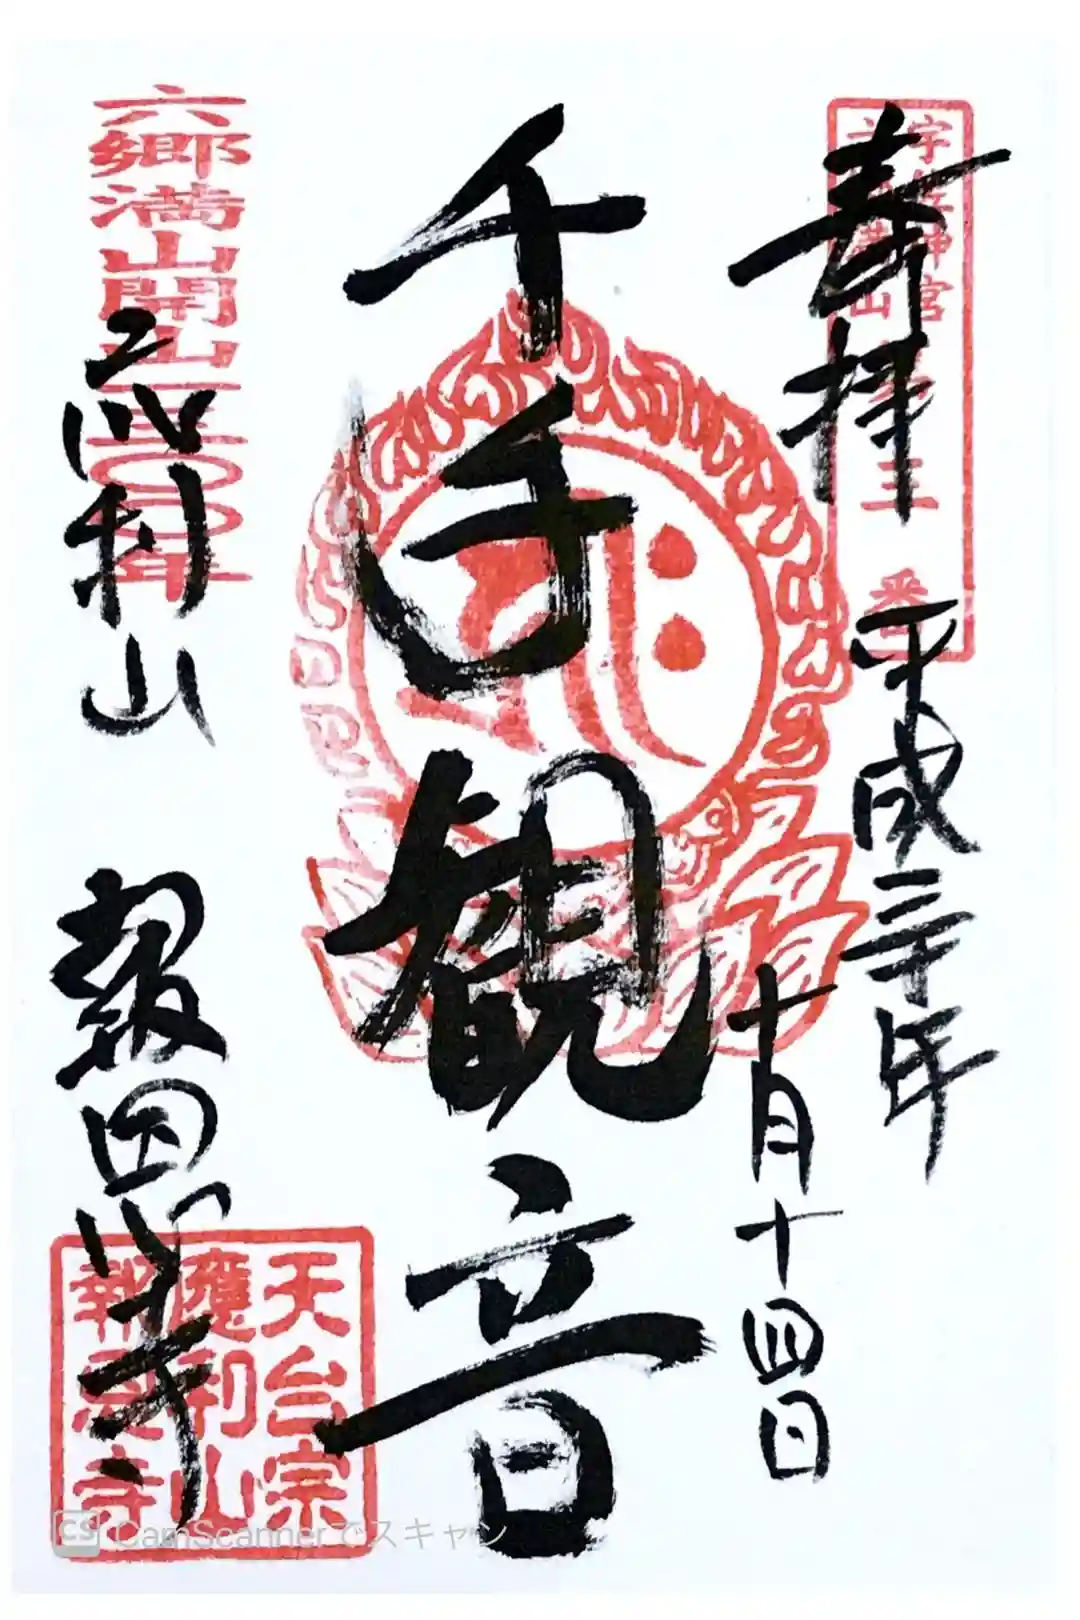 奉拝
平成三十年
十月十四日
宇佐神宮
六郷満山
三番
千手観音
六郷満山開山一三〇〇年
利山
報恩寺
天台宗
魔利山
報恩寺
CS CamScannerでスキャン